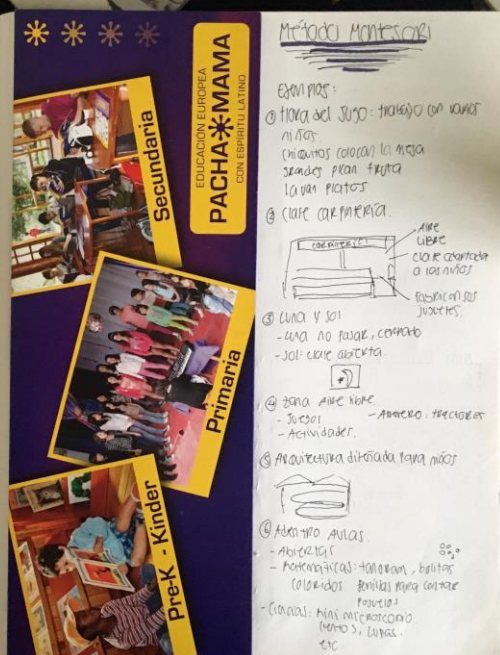 EDUCACIÓN EUROPEA
PACHA MAMA
CON ESPÍRITU LATINO
Secundaria
Primaria
Pre-K - Kinder
Método Montesori
Ejemplos:
① Hora del Jugo: trabajo con varios
niños
Chiquitos colocan la mesa
grandes pican fruta
lavan platos
② Clase carpintería.
CARPINTERIA
AIRE
LIBRE
clase adaptada
a los niños
Fabrican sus
juguetes.
③ Luna y sol
- Luna no pasar, cerrado
- Sol: clase abierta.
④ Zona Aire libre.
- Juegos
- Actividades.
⑤ Arquitectura diseñada para niños
⑥ Adentro Aulas
- Abiertas
- Matemáticas: tangram, bolitas
coloridos para contar
- Ciencias: Mini microscopio
lentos, Lupas.
etc